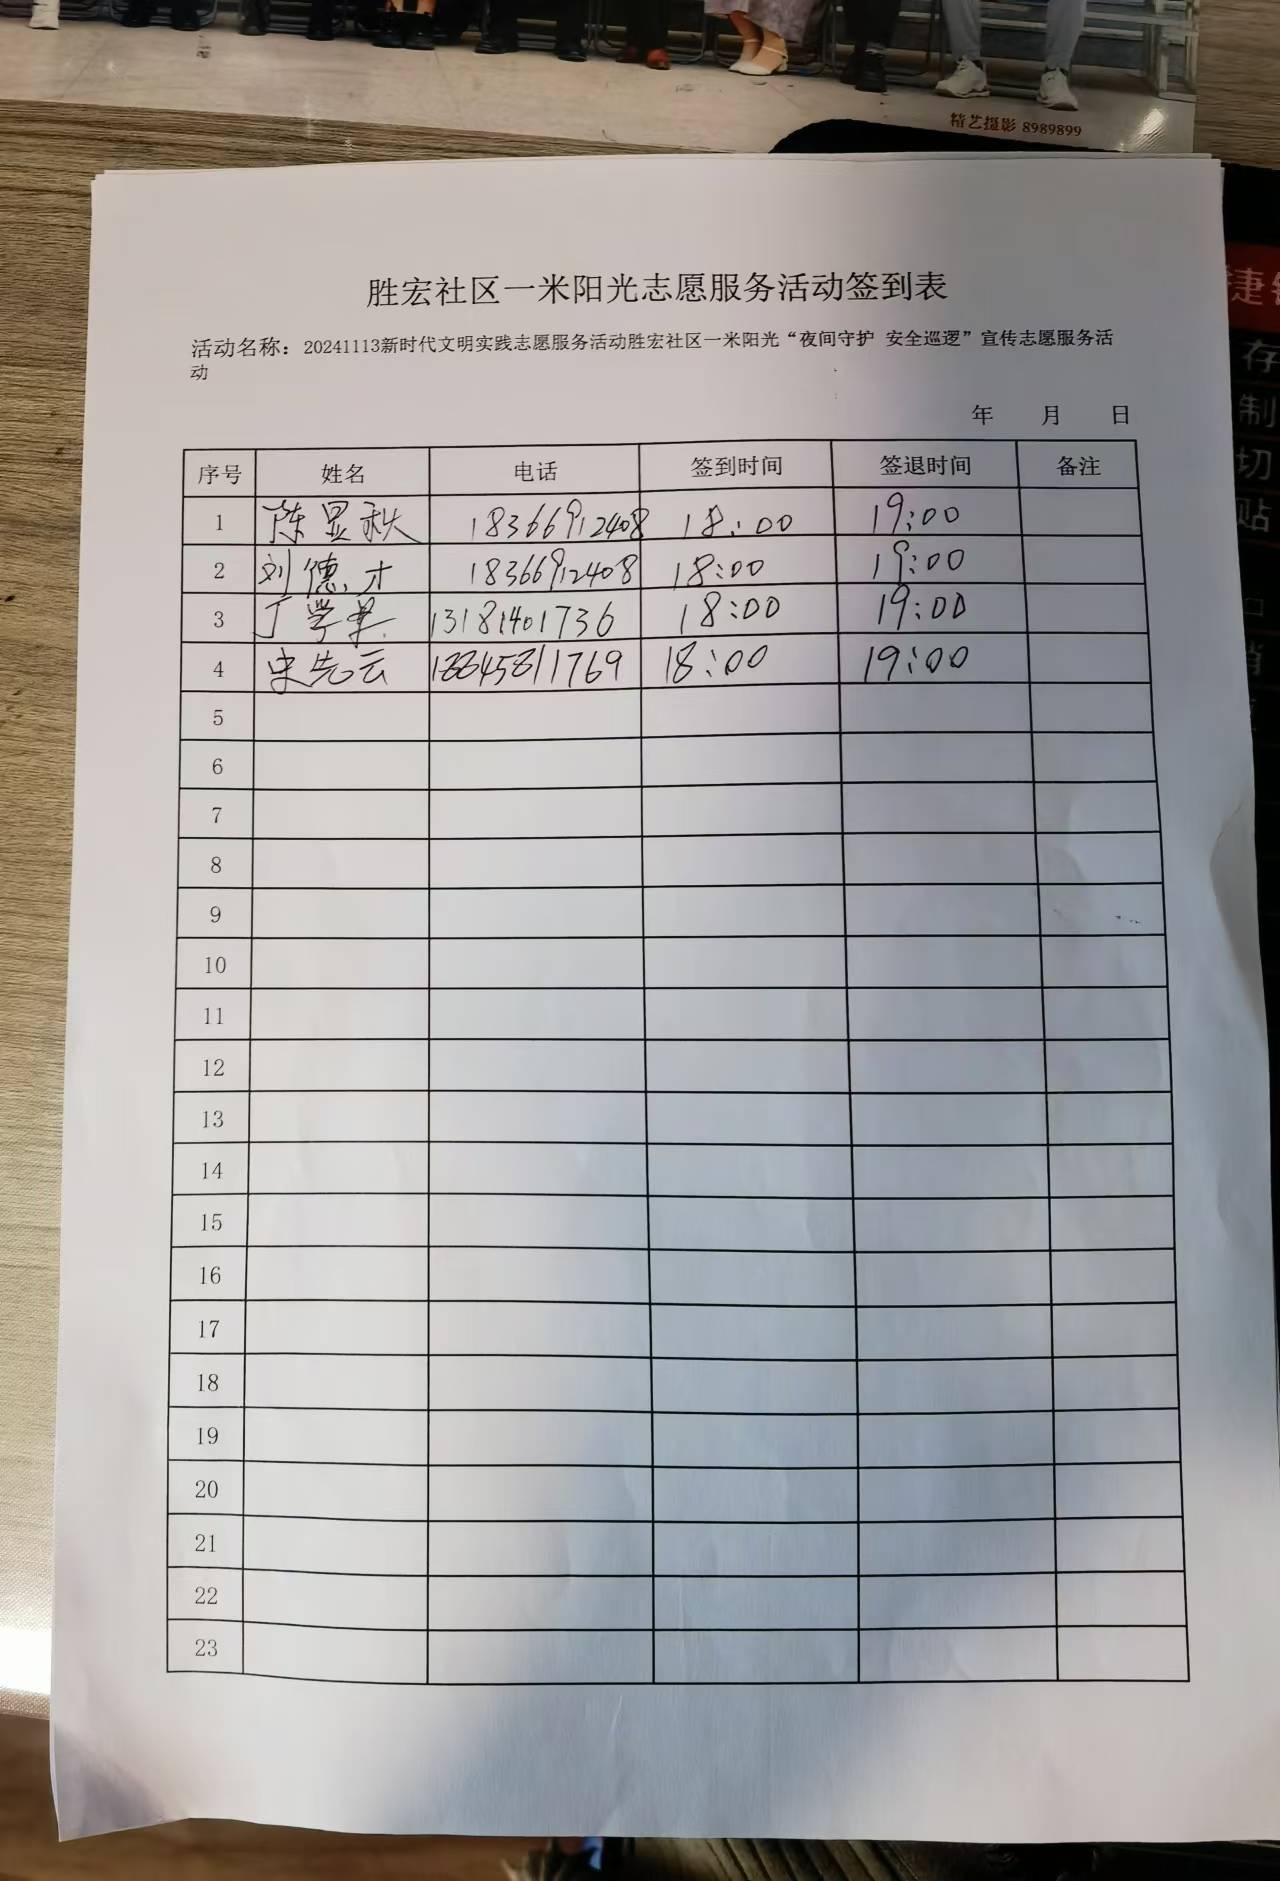 精艺摄影 8989899
胜宏社区一米阳光志愿服务活动签到表
活动名称：20241113新时代文明实践志愿服务活动胜宏社区一米阳光“夜间守护 安全巡逻”宣传志愿服务活
动
年 月 日
序号 姓名 电话 签到时间 签退时间 备注
1 陈显秋 18366912408 18:00 19:00
2 刘德才 18366912408 18:00 19:00
3 丁学 13181401736 18:00 19:00
4 史先云 18845811769 18:00 19:00
5
6
7
8
9
10
11
12
13
14
15
16
17
18
19
20
21
22
23
捷
存
制
切
贴